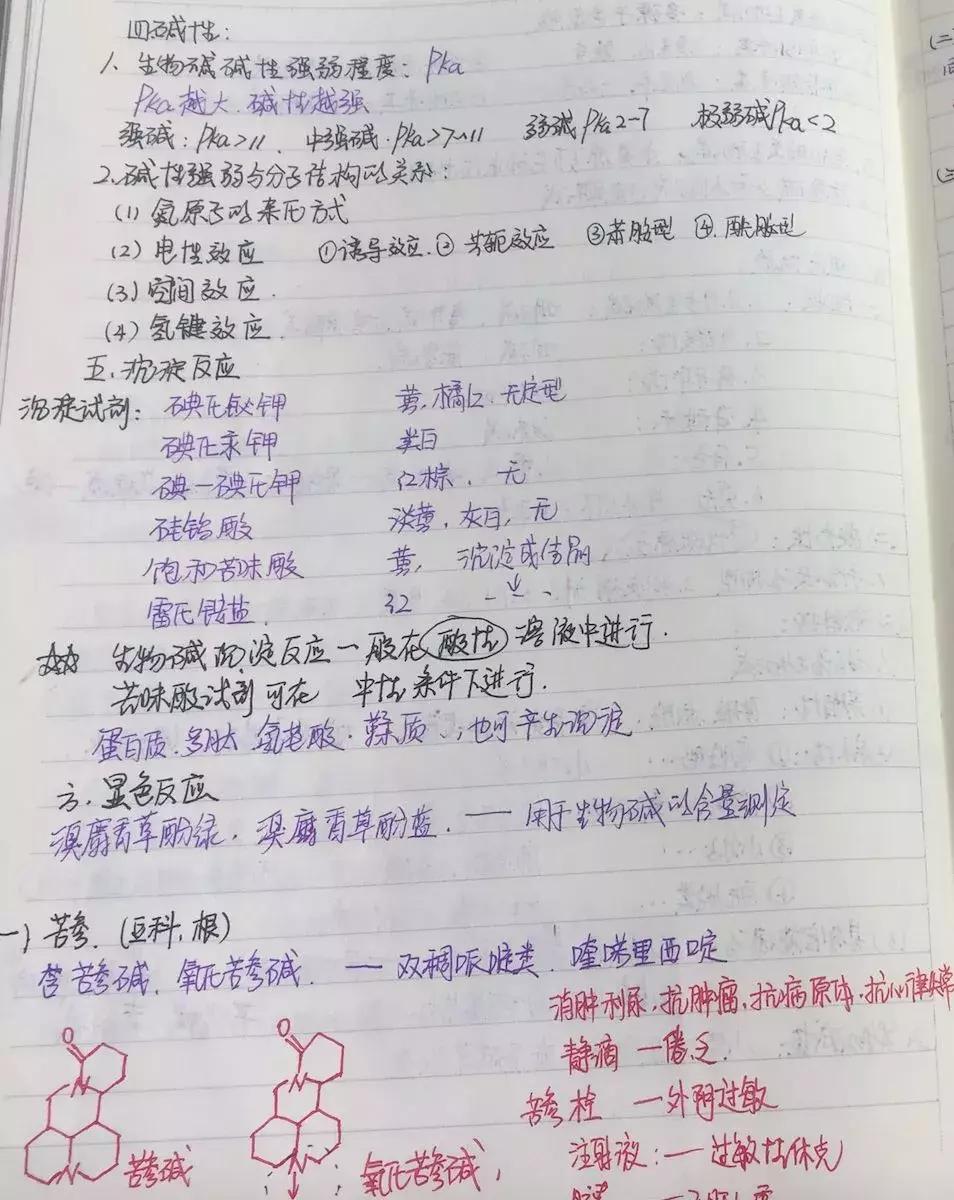 四.碱性:
1、生物碱碱性强弱程度: pka
Pka越大.碱性越强
强碱: pka>11、中强碱.pka>7~11 弱碱pka2-7 极弱碱pka<2
2.碱性强弱与分子结构的关系:
(1) 氮原子的杂化方式
(2) 电性效应 ①诱导效应.② 共轭效应 ③苯胺型 ④.酰胺型
(3) 空间效应.
(4) 氢键效应.
五.沉淀反应
沉淀试剂: 碘化铋钾 黄,橘红,无定型
碘化汞钾 类白
碘一碘化钾 红棕,无
硅钨酸 淡黄,灰白,无
饱和苦味酸 黄, 沉淀或结晶
雷氏铵盐 红
☆☆ 生物碱沉淀反应一般在酸性溶液中进行.
苦味酸试剂可在 中性条件下进行.
蛋白质.多肽.氨基酸.鞣质,也可产生沉淀.
六.显色反应
溴麝香草酚绿.溴麝香草酚蓝.一用于生物碱的含量测定
一) 苦参.(豆科,根)
含苦参碱.氧化苦参碱.一双稠哌啶类.喹喏里西啶
消肿利尿,抗肿瘤,抗病原体,抗心律失常
静滴一倦乏
苦参栓 一外阴过敏
注射液:一过敏性休克
O
N
N
苦参碱
O
N
N
氧化苦参碱,